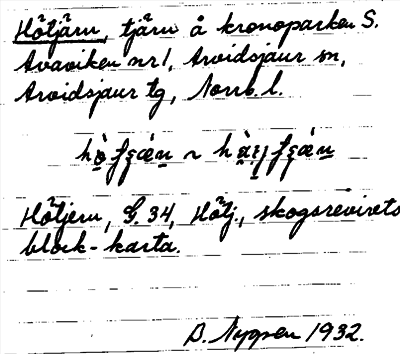 Hötjärn, tjärn å kronoparken S.
Avaviken nr 1, Arvidsjaur sn,
Arvidsjaur tg, Norrb. l.
Hötjern, G. 34, Hötj., skogsrevirets
block-karta.
B. Nygren 1932.